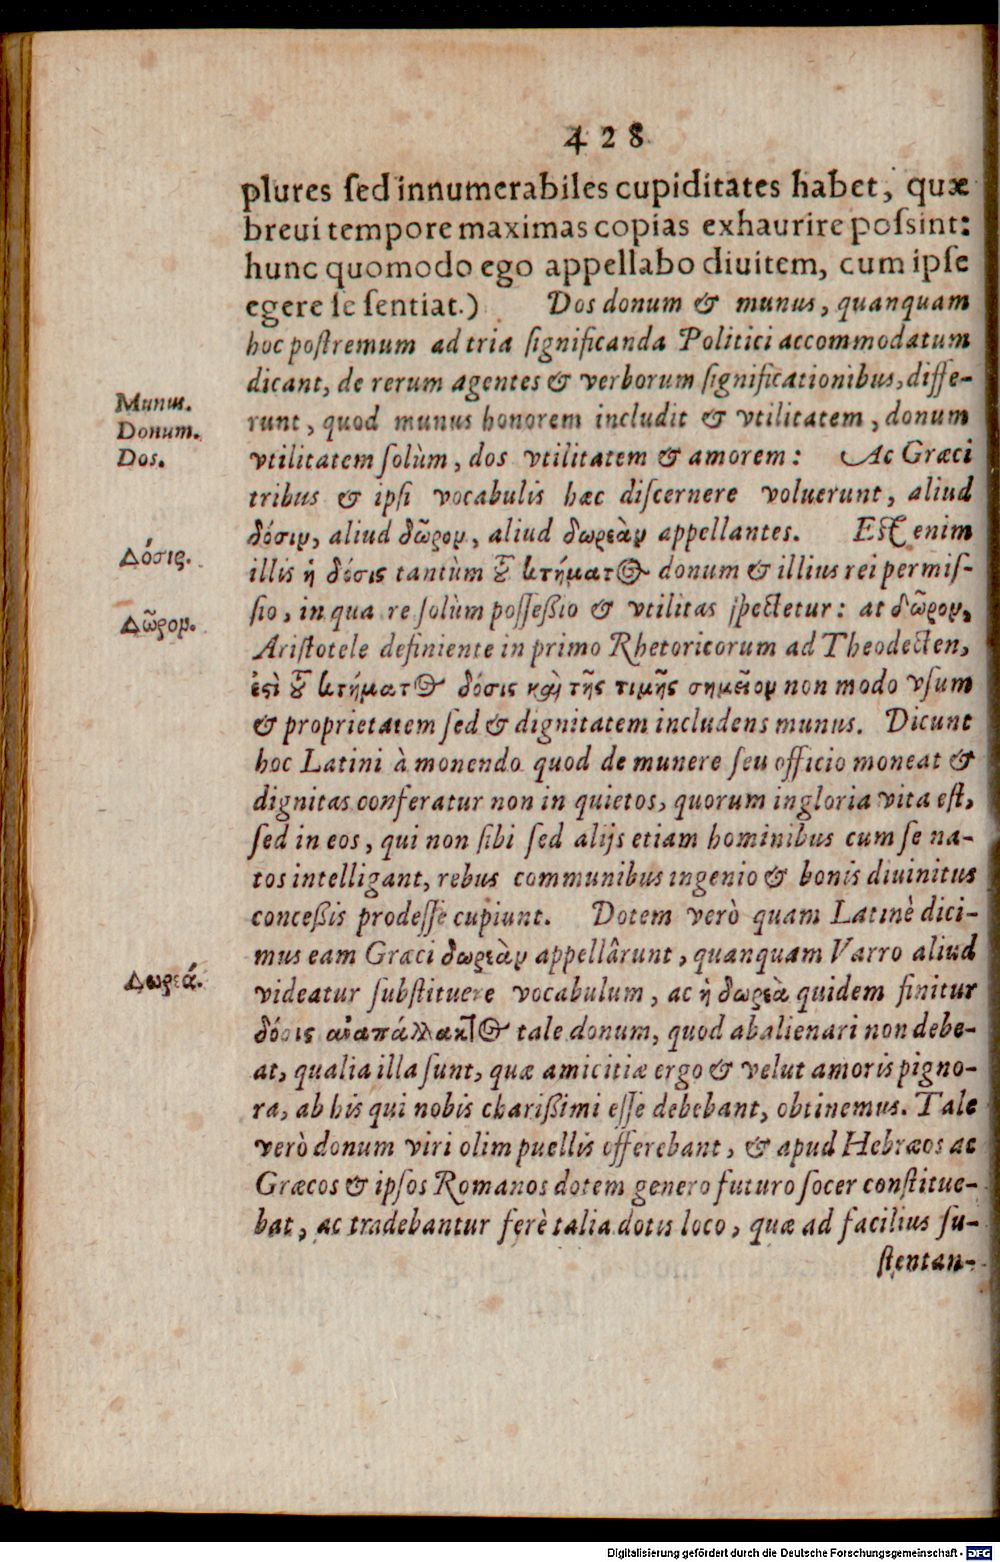 428
plures ſed innumerabiles cupiditates habet, quæ
breui tempore maximas copias exhaurire poſsint:
hunc quomodo ego appellabo diuitem, cum ipſe
egere ſe ſentiat.) Dos donum & munus, quanquam
hoc poſtremum ad tria ſignificanda Politici accommodatum
dicant, de rerum agentes & verborum ſignificationibus, diffe-
Munus.
runt, quod munus honorem includit & vtilitatem, donum
Donum.
vtilitatem ſolùm, dos vtilitatem & amorem: Ac Græci
Dos.
tribus & ipſi vocabulis hæc diſcernere voluerunt, aliud
δόσιν, aliud δῶρον, aliud δωρεὰν appellantes. Eſt enim
Δόσις.
illis ἡ δόσις tantùm τοῦ κτήματος donum & illius rei permiſ-
ſio, in qua re ſolùm poſſeßio & vtilitas ſpectetur: at δῶρον,
Δῶρον.
Ariſtotele definiente in primo Rhetoricorum ad Theodecten,
ἐστὶ τοῦ κτήματος δόσις καὶ τῆς τιμῆς σημεῖον non modo vſum
& proprietatem ſed & dignitatem includens munus. Dicunt
hoc Latini à monendo quod de munere ſeu officio moneat &
dignitas conferatur non in quietos, quorum ingloria vita eſt,
ſed in eos, qui non ſibi ſed alijs etiam hominibus cum ſe na-
tos intelligant, rebus communibus ingenio & bonis diuinitus
conceßis prodeſſe cupiunt. Dotem verò quam Latinè dici-
mus eam Græci δωρεὰν appellârunt, quanquam Varro aliud
Δωρεά.
videatur ſubſtituere vocabulum, ac ἡ δωρεὰ quidem finitur
δόσις ἀναπάλλακτος tale donum, quod abalienari non debe-
at, qualia illa ſunt, quæ amicitiæ ergo & velut amoris pigno-
ra, ab his qui nobis charißimi eſſe debebant, obtinemus. Tale
verò donum viri olim puellis offerebant, & apud Hebræos ac
Græcos & ipſos Romanos dotem genero futuro ſocer conſtitue-
bat, ac tradebantur ferè talia dotis loco, quæ ad facilius ſu-
ſtentan-
Digitalisierung gefördert durch die Deutsche Forschungsgemeinschaft - DFG